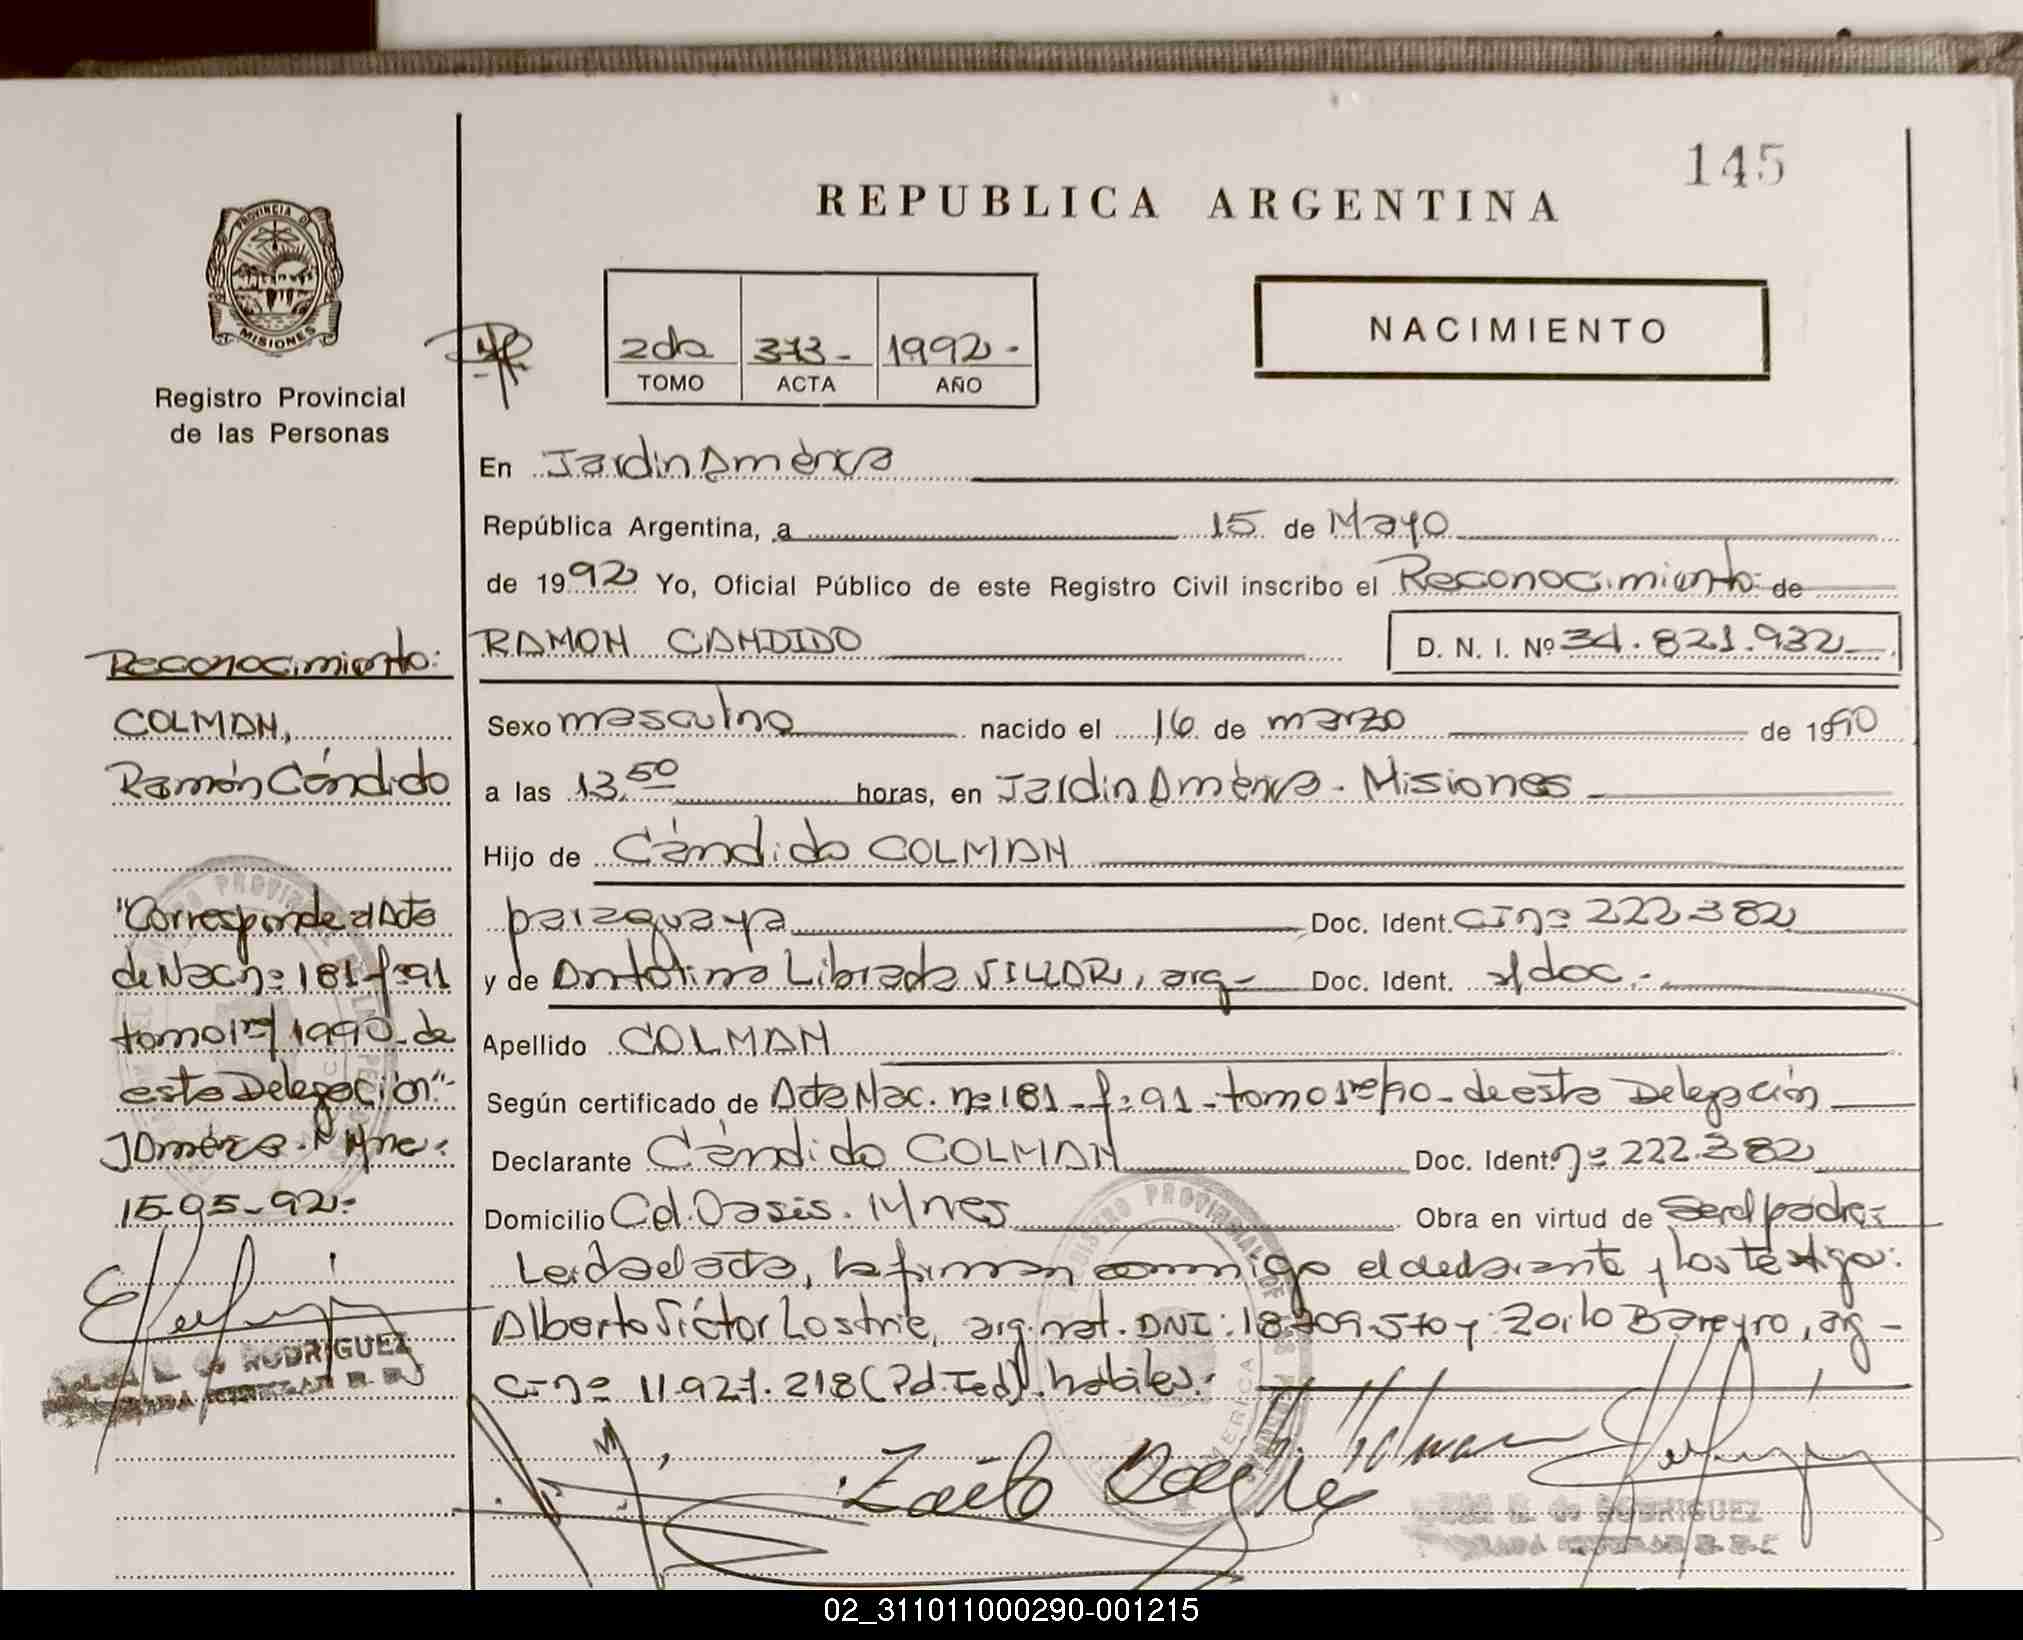 145
REPUBLICA ARGENTINA
PROVINCIA DE
MISIONES
Registro Provincial
de las Personas
2da 373- 1992-
TOMO ACTA AÑO
NACIMIENTO
En Jardín América
República Argentina, a 15 de Mayo
de 1992 Yo, Oficial Público de este Registro Civil inscribo el Reconocimiento de
RAMON CANDIDO D. N. I. Nº 34.821.932
Sexo masculino nacido el 16 de marzo de 1990
a las 13,50 horas, en Jardín América - Misiones
Hijo de Cándido COLMAN
paraguaya Doc. Ident. CI nº 222.382
y de Antolina Librada VILLAR, arg- Doc. Ident. s/doc.-
Apellido COLMAN
Según certificado de Acta Nac. nº 181 - fº 91 - tomo 1º/90 - de esta Delegación
Declarante Cándido COLMAN Doc. Ident. nº 222.382
Domicilio Col. Oasis. Mnes Obra en virtud de ser el padre
Leída el acta, la firman conmigo el declarante y los testigo:
Alberto Víctor Lostrie, arg. nat. DNI: 18.709.570 y: Zoilo Bareyro, arg-
CI nº 11.927.218 (Pd. Fed). hábiles.-
Reconocimiento:
COLMAN,
Ramón Cándido
"Corresponde al Acta
de Nac nº 181 fº 91
tomo 1º/1990 - de
esta Delegación"-
J América - Mnes:
15-05-92.-
RODRIGUEZ
Zoilo
RODRIGUEZ
02_311011000290-001215